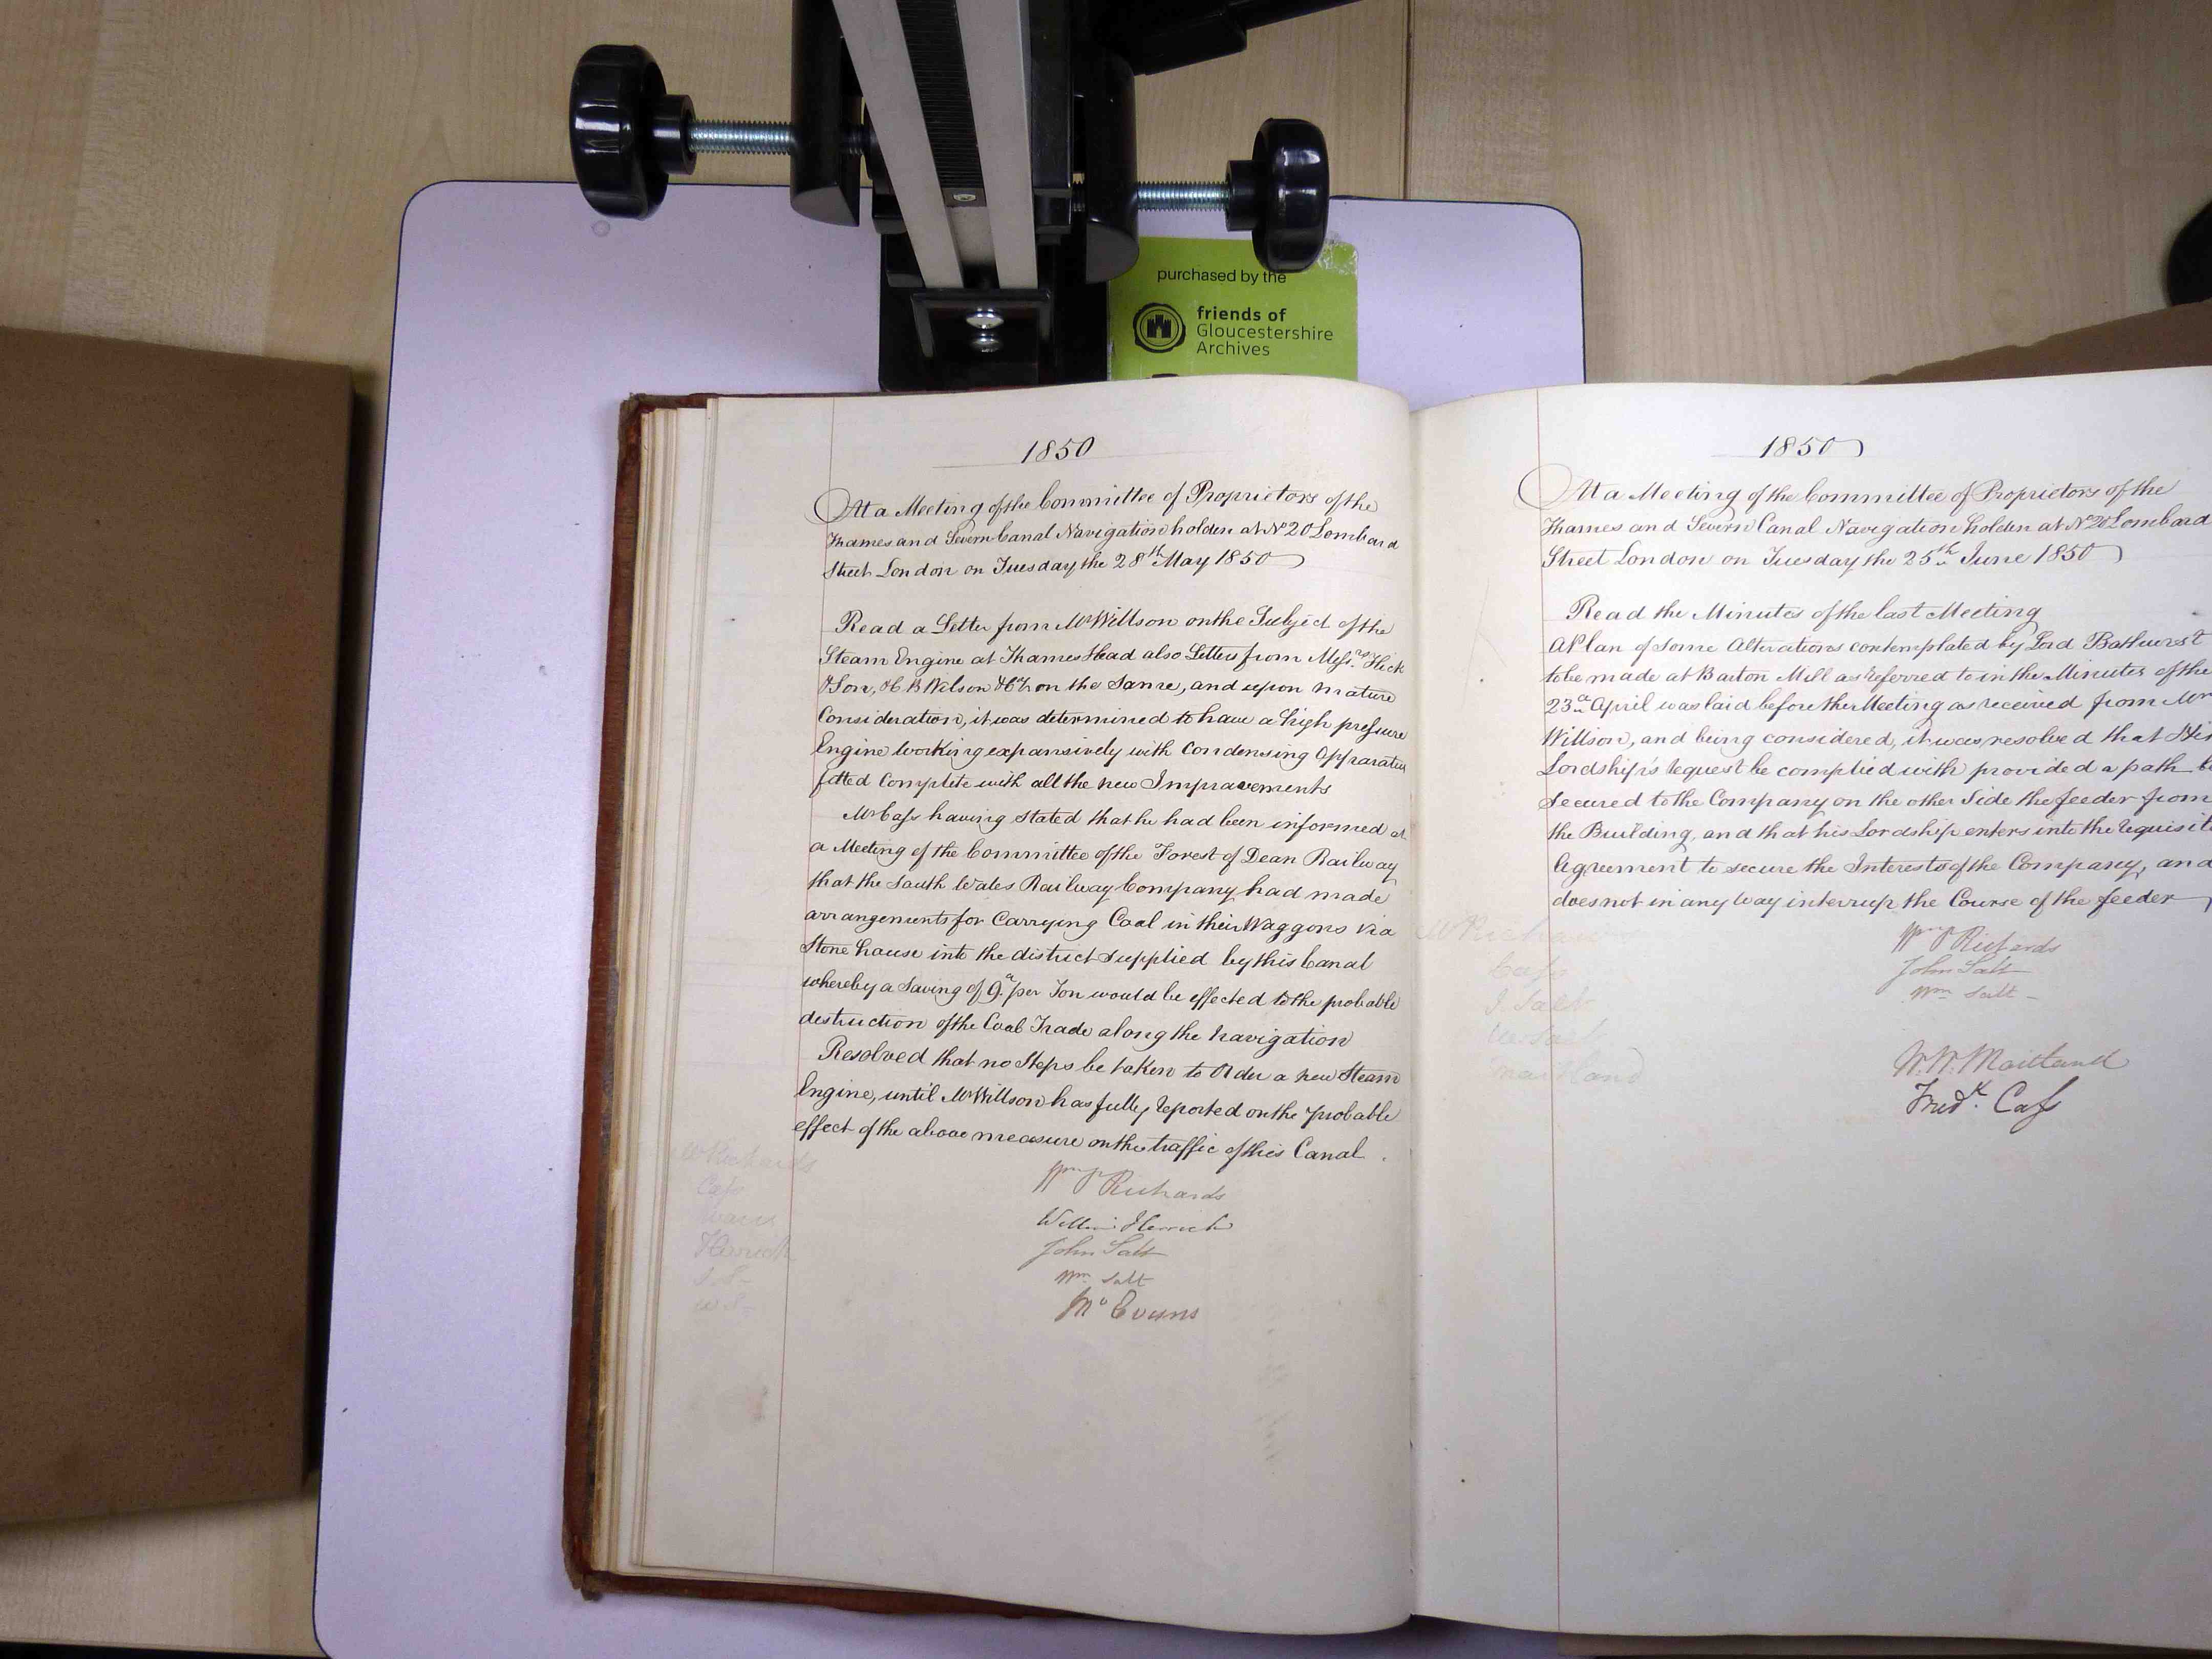 purchased by the
friends of
Gloucestershire
Archives
1850
At a Meeting of the Committee of Proprietors of the
Thames and Severn Canal Navigation holden at No 20 Lombard
Street London on Tuesday the 28th May 1850
Read a Letter from Mr Willson on the Subject of the
Steam Engine at Thames Head also Letters from Messrs Hick
& Son, & C B Wilson & Co on the Same, and upon mature
Consideration, it was determined to have a high pressure
Engine working expansively with Condensing Apparatus
fitted Complete with all the new Improvements
Mr Cass having stated that he had been informed at
a Meeting of the Committee of the Forest of Dean Railway
that the South Wales Railway Company had made
arrangements for Carrying Coal in their Waggons via
Stonehouse into the district supplied by this Canal
whereby a Saving of 9d per Ton would be effected to the probable
destruction of the Coal Trade along the navigation
Resolved that no Steps be taken to Order a new Steam
Engine, until Mr Willson has fully reported on the probable
effect of the above measure on the traffic of this Canal.
W Richards
Cass
Evans
Herrick
J. S-
W S-
Wm P Richards
William Herrick
John Salt
Wm Salt
Evans
1850
At a Meeting of the Committee of Proprietors of the
Thames and Severn Canal Navigation holden at No 20 Lombard
Street London on Tuesday the 25th June 1850
Read the Minutes of the last Meeting
A Plan of some Alterations contemplated by Lord Bathurst
to be made at Barton Mill as referred to in the Minutes of the
23d April was laid before the Meeting as received from Mr
Willson, and being considered, it was resolved that His
Lordship's request be complied with provided a path be
Secured to the Company on the other Side the feeder from
the Building, and that his Lordship enters into the requisite
Agreement to secure the Interests of the Company, and
does not in any way interrup the Course of the feeder
W Richards
Cass
J Salt
W Salt
Maitland
Wm P Richards
John Salt
Wm Salt
W. W. Maitland
Fredk. Cass